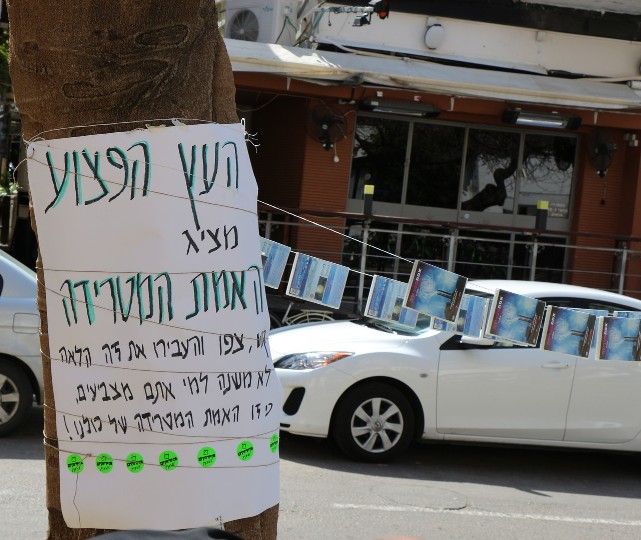 העץ הפצוע
מציג
האמת המטרידה
צפו והעבירו את זה הלאה
לא משנה למי אתם מצביעים.
כי זו האמת המטרידה של כולנו!